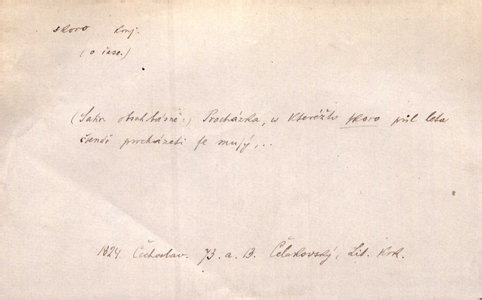 skoro konj.
(o čase.)
(Jako obchůzné.) Procházka, w kteréžto skoro půl leta
čtenáři procházeti se mugj,..
1824. Čechoslav. 73. a. B. Čelakovský, Lit. Krk.